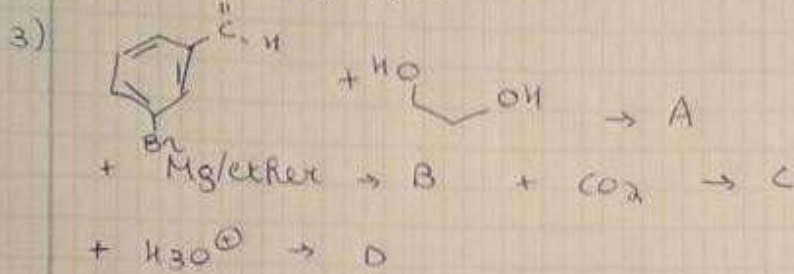 3)
C H
+ HO OH → A
Br
+ Mg/ether → B + CO2 → C
+ H3O⊕ → D